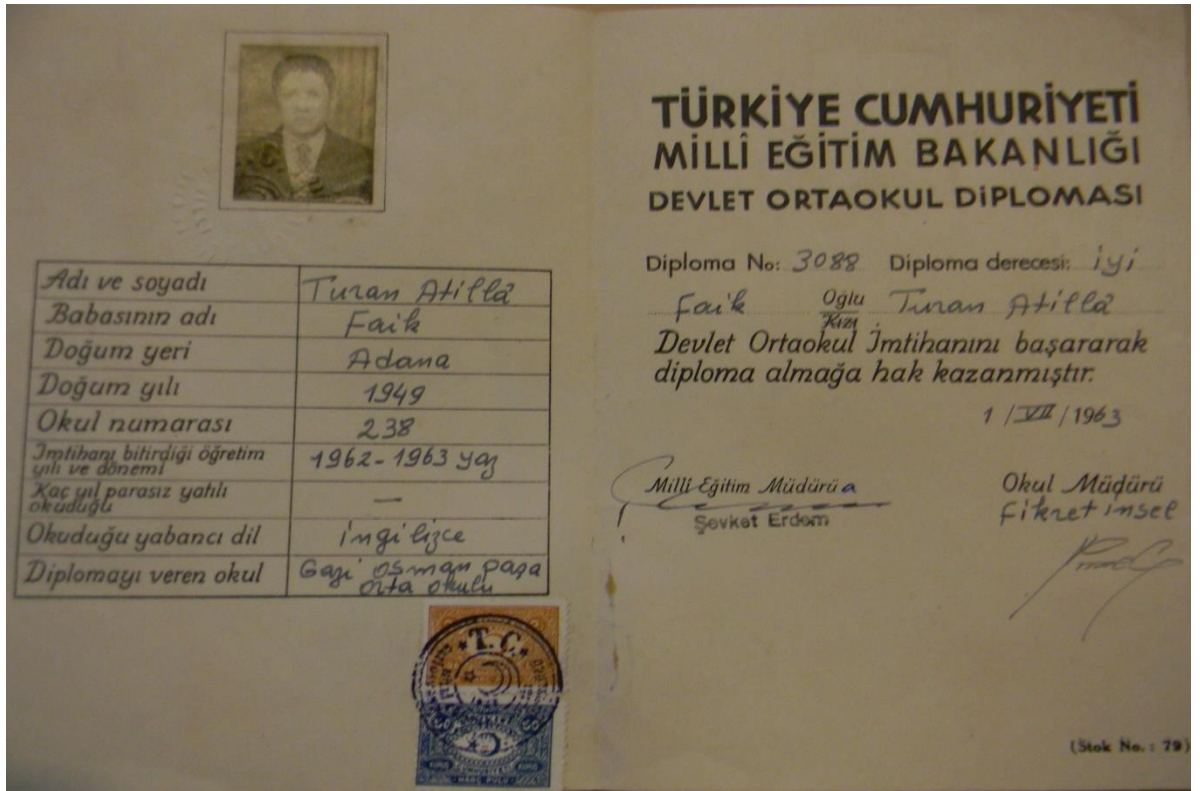 Adı ve soyadı Turan Atillâ
Babasının adı Faik
Doğum yeri Adana
Doğum yılı 1949
Okul numarası 238
İmtihanı bitirdiği öğretim
yılı ve dönemi 1962-1963 yaz
Kaç yıl parasız yatılı
okuduğu —
Okuduğu yabancı dil ingilizce
Diplomayı veren okul Gazi osman paşa
orta okulu
T.C.
CUMHURİYETİ
TÜRKİYE CUMHURİYETİ
MİLLÎ EĞİTİM BAKANLIĞI
DEVLET ORTAOKUL DİPLOMASI
Diploma No: 3088 Diploma derecesi: iyi
Faik Oğlu Turan Atillâ
Kızı
Devlet Ortaokul İmtihanını başararak
diploma almağa hak kazanmıştır.
1 / VII / 1963
Millî Eğitim Müdürü a
Şevket Erdem
Okul Müdürü
Fikret insel
(Stok No. : 79)